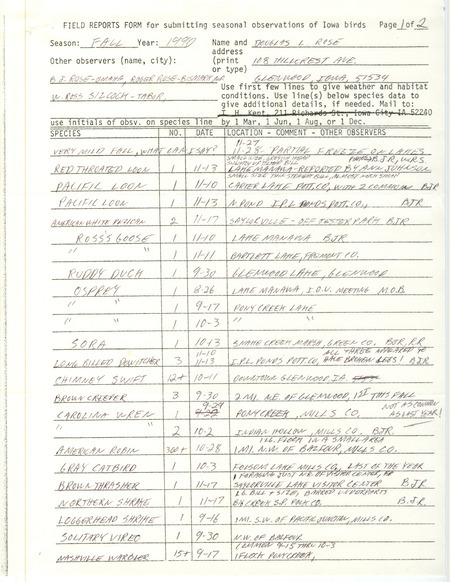 FIELD REPORTS FORM for submitting seasonal observations of Iowa birds Page 1 of 2
Season: FALL Year: 1990
Name and address (print or type)
DOUGLAS C. ROSE
108 HILLCREST AVE.
GLENWOOD, IOWA, 51534
Other observers (name, city):
B.J. ROSE-OMAHA, ROGER ROSE-
W. ROSS SILCOCK-TABOR,
Use first few lines to give weather and habitat
conditions. Use line(s) below species data to
give additional details, if needed. Mail to:
T. H. Kent, 211 Richards St., Iowa City IA 52240
use initials of obsv. on species line by 1 Mar, 1 Jun, 1 Aug, or 1 Dec.
SPECIES NO. DATE LOCATION - COMMENT - OTHER OBSERVERS
VERY MILD FALL, WHAT CAN I SAY? 11-27
11-28 PARTIAL FREEZE ON LAKES
RED THROATED LOON 1 11-13 LAKE MANAWA-REPORTED BY ANN JOHNSON B.J.R, W.R.S.
PACIFIC LOON 1 11-10 CARTER LAKE POTT.CO, WITH 2 COMMON BJR
PACIFIC LOON 1 11-13 N. POND I.P.L. PONDS POTT.CO., BJR
AMERICAN WHITE PELICAN 2 11-17 SAYLORVILLE - OFF BJR
ROSS'S GOOSE 1 11-10 LAKE MANAWA BJR
" 1 11-11 BARTLETT LAKE, FREMONT CO.
RUDDY DUCK 1 9-30 GLENWOOD LAKE, GLENWOOD
OSPREY 1 8-26 LAKE MANAWA, I.O.U. MEETING M.O.B.
" " 1 9-17 PONY CREEK LAKE
" " 1 10-3 " "
SORA 1 10-13 SNAKE CREEK MARSH, GREEN CO. BJR, RR
LONG BILLED DOWITCHER 3 11-10
11-13 I.P.L. PONDS POTT.CO, ALL THREE APPEARED TO
HAVE BROKEN LEGS! BJR
CHIMNEY SWIFT 12+ 10-11 DOWNTOWN GLENWOOD IA.
BROWN CREEPER 3 9-30 2 MI. N.E. OF GLENWOOD, 1ST THIS FALL
CAROLINA WREN 1 9-29 PONY CREEK, MILLS CO, NOT AS COMMON
AS LAST YEAR!
" 2 10-2 INDIAN HOLLOW, MILLS CO, BJR
AMERICAN ROBIN 300+ 10-28 LG. FLOCK IN A SMALL AREA
1 MI. N.W. OF BALFOUR, MILLS CO.
GRAY CATBIRD 1 10-3 FOLSOM LAKE MILLS CO, LAST OF THE YEAR
BROWN THRASHER 1 11-17 1 FORAGING JUST N.E. OF VISITOR CENTER, AT
SAYLORVILLE LAKE VISITOR CENTER BJR
NORTHERN SHRIKE 1 11-17 LG. BILL & SIZE, BARRED UNDERPARTS
BIG CREEK S.P. POLK CO. B.J.R.
LOGGERHEAD SHRIKE 1 9-16 1 MI. S.W. OF PACIFIC JUNCTION, MILLS CO.
SOLITARY VIREO 1 9-30 N.W. OF BALFOUR
NASHVILLE WARBLER 15+ 9-17 COMMON 9-15 THRU 10-3
1 FLOCK PONY CREEK,